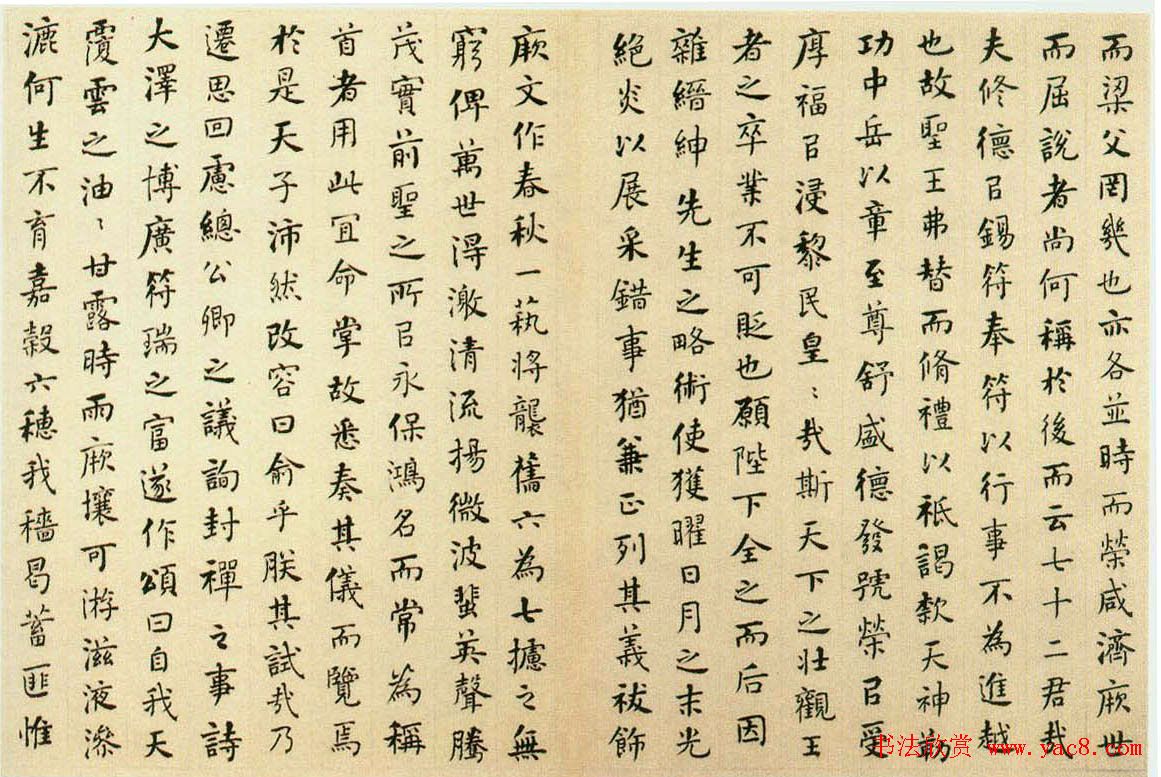 而梁父罔幾也亦各並時而榮咸濟厥世
而屈說者尚何稱於後而云七十二君哉
夫修德㠯錫符奉符以行事不為進越
也故聖王弗替而脩禮以祗謁款天神勒
功中岳以章至尊舒盛德發號榮㠯受
厚福㠯浸黎民皇〻哉斯天下之壯觀王
者之卒業不可貶也願陛下全之而后因
雜縉紳先生之略術使獲曜日月之末光
絕炎以展采錯事猶兼正列其義祓飾
厥文作春秋一蓺將襲舊六為七攄之無
窮俾萬世得激清流揚微波蜚英聲騰
茂實前聖之所㠯永保鴻名而常為稱
首者用此宜命掌故悉奏其儀而覽焉
於是天子沛然改容曰俞乎朕其試哉乃
遷思回慮總公卿之議詢封禪之事詩
大澤之博廣符瑞之富遂作頌曰自我天
覆雲之油〻甘露時雨厥壤可游滋液滲
漉何生不育嘉穀六穗我穡曷蓄匪惟
书法欣赏 www.yac8.com